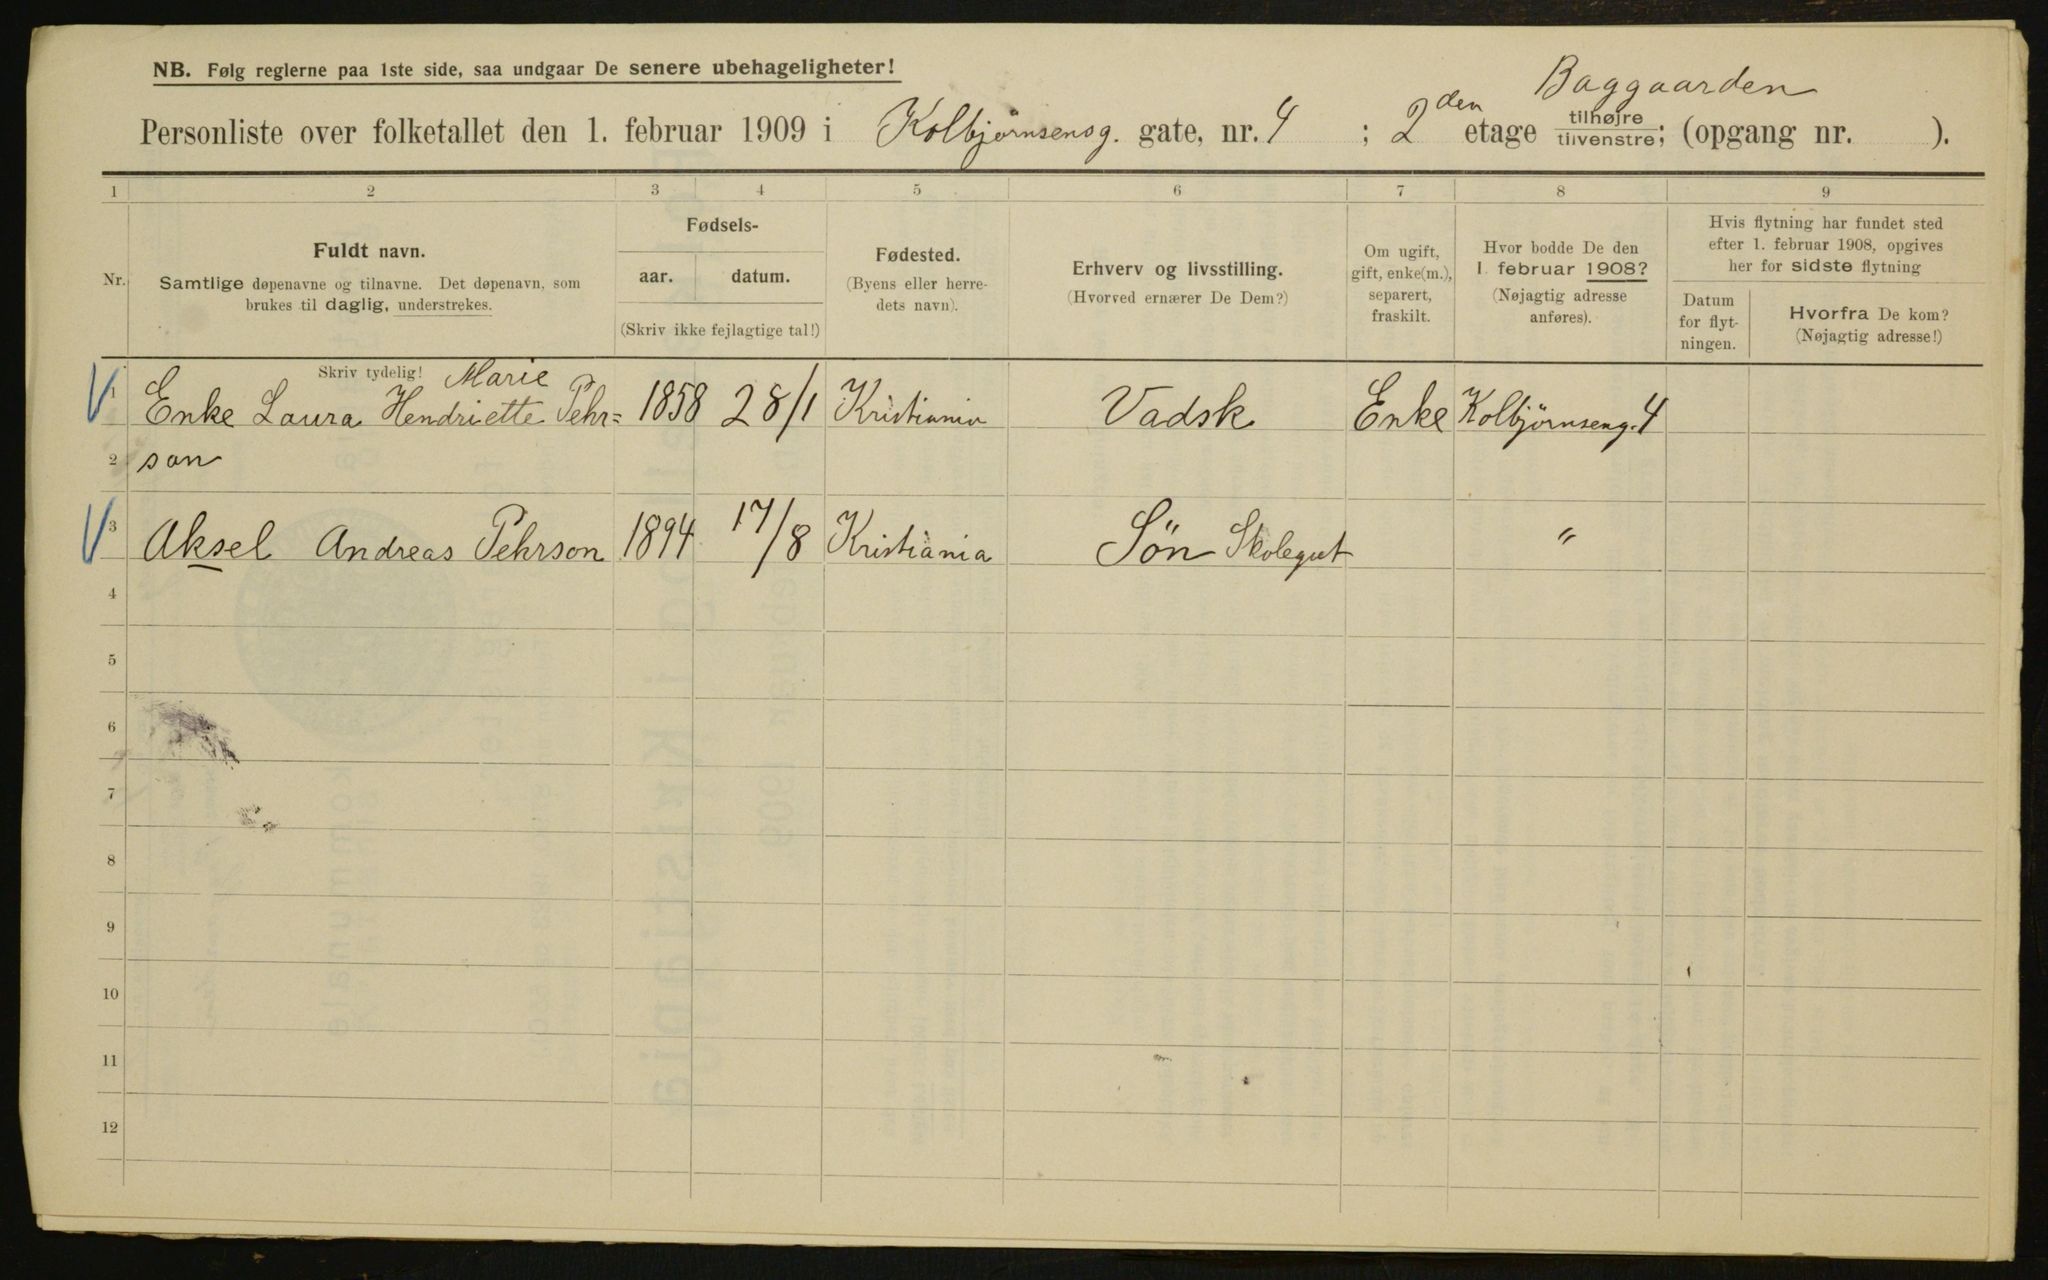 NB. Følg reglerne paa 1ste side, saa undgaar De senere ubehageligheter!
Baggaarden
Personliste over folketallet den 1. februar 1909 i Kolbjørnsensg. gate, nr. 4 ; 2den etage tilhøjre tilvenstre; (opgang nr. ).
1 2 3 4 5 6 7 8 9
Nr.
Fuldt navn.
Samtlige døpenavne og tilnavne. Det døpenavn, som
brukes til daglig, understrekes.
Skriv tydelig!
Fødsels-
aar. datum.
(Skriv ikke fejlagtige tal!)
Fødested.
(Byens eller herre-
dets navn).
Erhverv og livsstilling.
(Hvorved ernærer De Dem?)
Om ugift,
gift, enke(m.),
separert,
fraskilt.
Hvor bodde De den
1. februar 1908?
(Nøjagtig adresse
anføres).
Hvis flytning har fundet sted
efter 1. februar 1908, opgives
her for sidste flytning
Datum
for flyt-
ningen.
Hvorfra De kom?
(Nøjagtig adresse!)
Marie
1 Enke Laura Hendriette Pehr= 1858 28/1 Kristiania Vadsk Enke Kolbjørnseng. 4
2 son
3 Aksel Andreas Pehrson 1894 17/8 Kristiania Søn Skolegut "
4
5
6
7
8
9
10
11
12